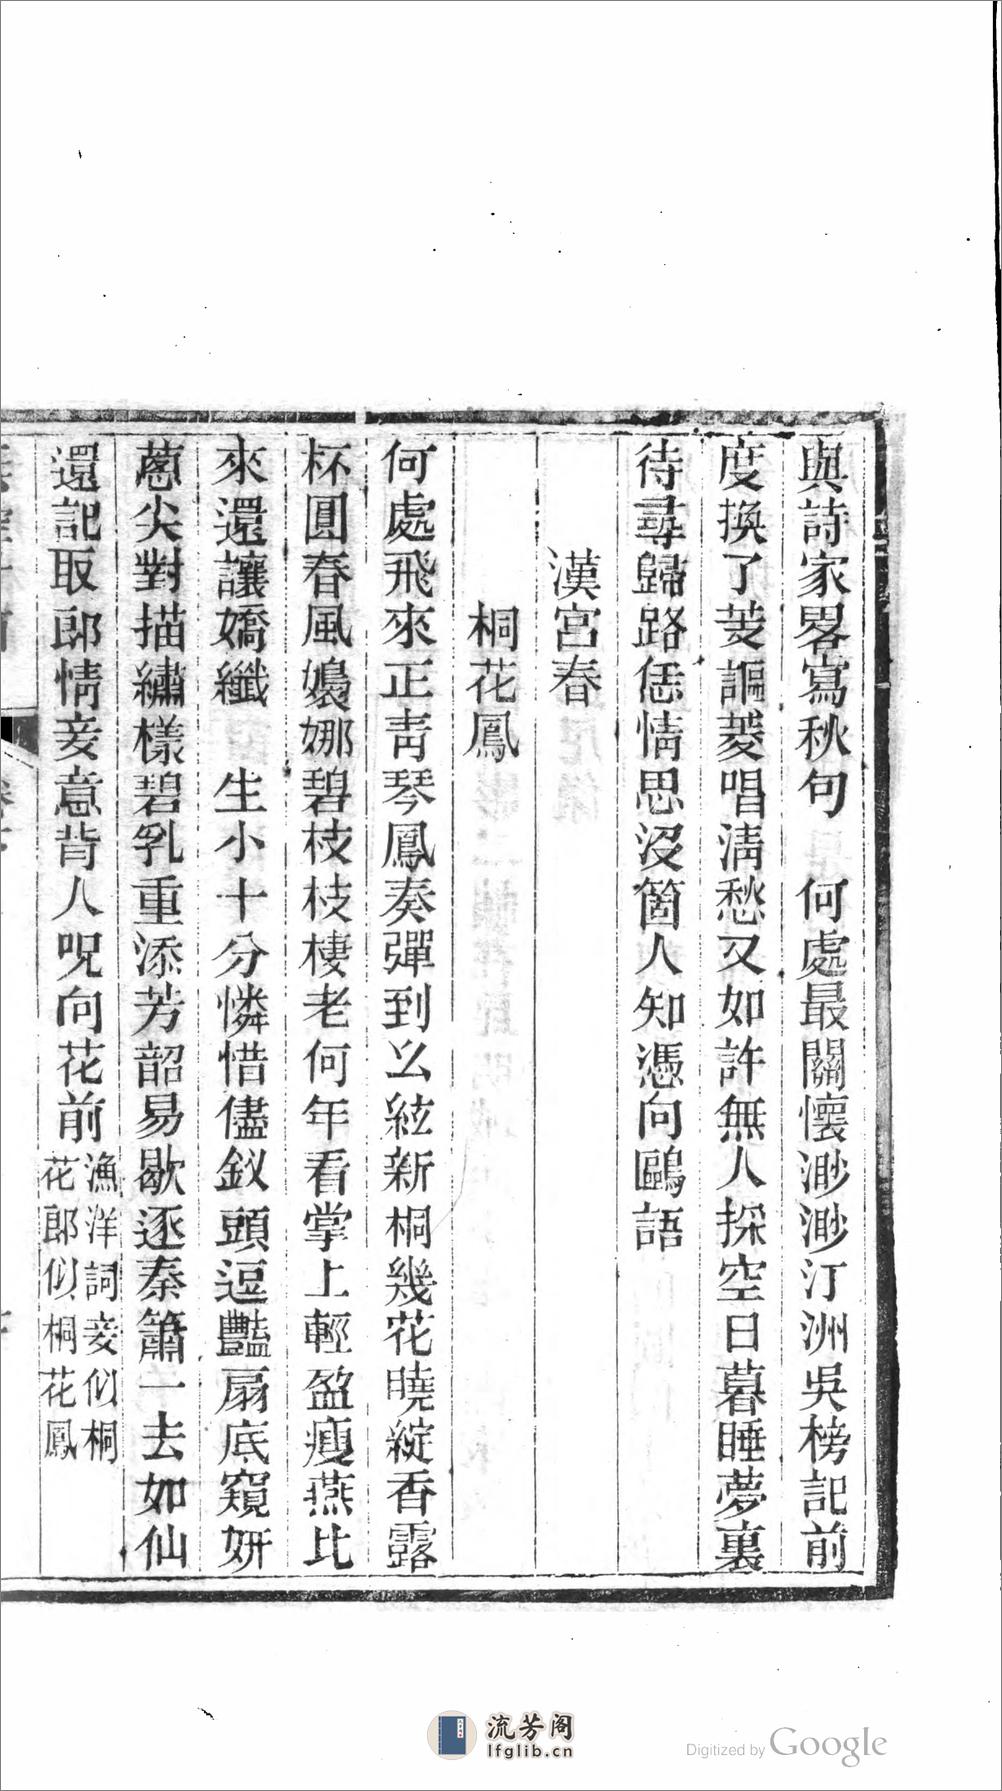 與詩家畧寫秋句　何處最關懷渺渺汀洲吳榜記前
度換了芰謳菱唱淸愁又如許無人採空日暮睡夢裏
待尋歸路恁情思沒箇人知憑向鷗語
漢宮春
桐花鳳
何處飛來正靑琴鳳奏彈到幺絃新桐幾花曉綻香露
杯圓春風嬝娜碧枝枝棲老何年看掌上輕盈瘦燕比
來還讓嬌纖　生小十分憐惜儘釵頭逗豔扇底窺妍
蔥尖對描繡樣碧乳重添芳韶易歇逐秦簫一去如仙
還記取郎情妾意背人呪向花前漁洋詞妾似桐
花郎似桐花鳳
流芳阁
lfglib.cn
Digitized by Google